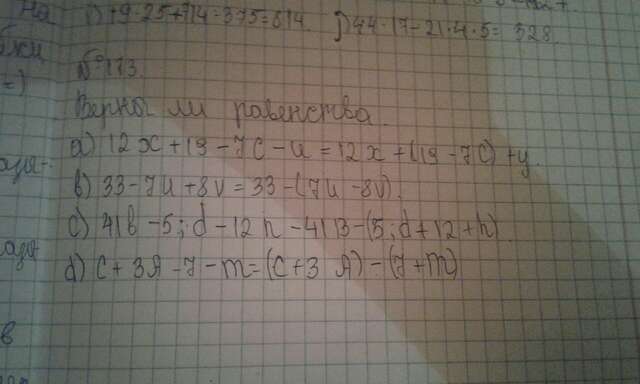 на
1) 79·25+714·375=614. 2) 44·17-21·4·5= 328.
№ 173.
Верны ли равенства.
а) 12x+19-7c-u=12x+(19-7c)+y.
в) 33-7u+8v=33-(7u-8v).
с) 41b-5;d-12h-41B-(5;d+12+h)
d) c+3A-7-m=(c+3 A)-(7+m)
в